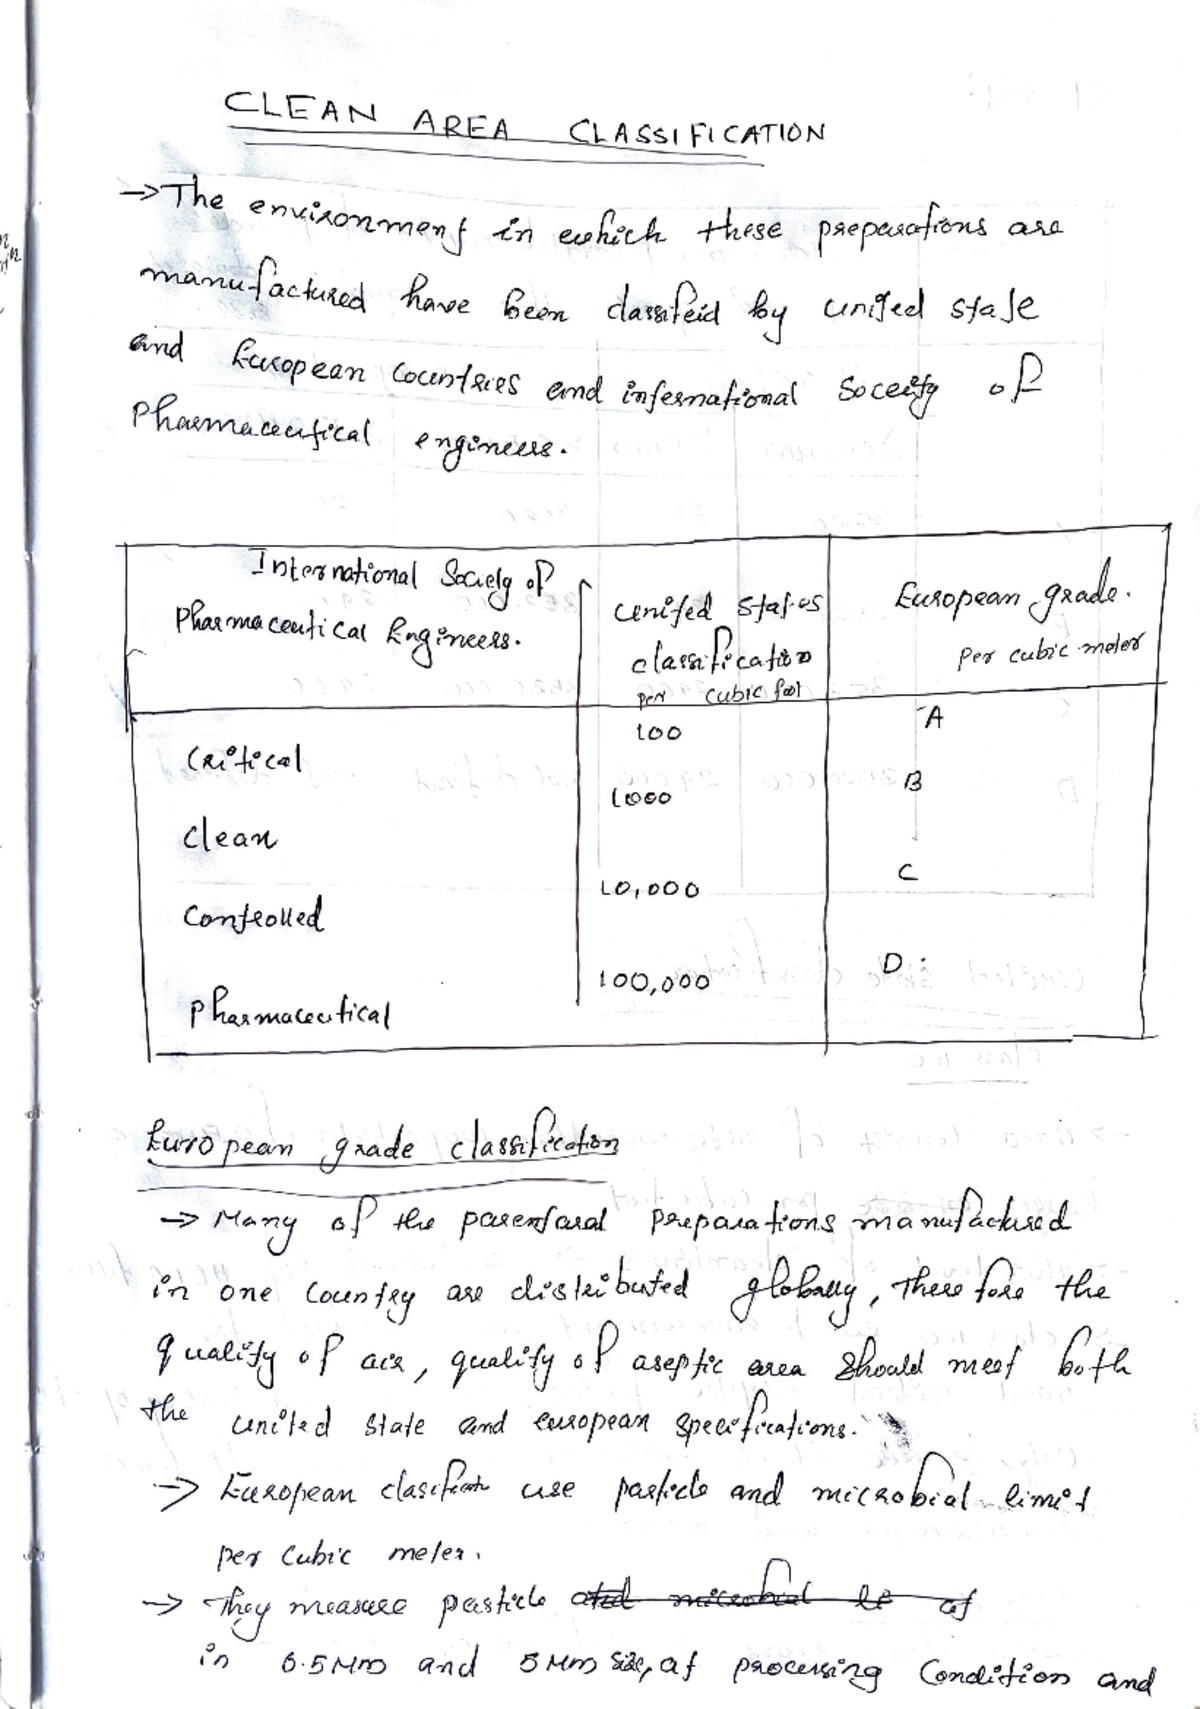 CLEAN AREA CLASSIFICATION
→ The environment in which these preparations are
manufactured have been classifeid by united state
and European Countries and international Soceity of
Pharmaceutical engineers.
International Society of
Pharmaceutical Engineers.
united states
classification
per cubic foot
European grade.
per cubic meter
Critical 100 A
Clean 1000 B
Controlled 10,000 C
Pharmaceutical 100,000 D
European grade classification
→ Many of the parentaral preparations manufactured
in one country are distributed globally, Therefore the
quality of air, quality of aseptic area should meet both
the united state and european specifications.
→ European use particle and microbial limit
per cubic meter.
→ They measure particle and microbial at
in 0.5 Mm and 5 Mm size, at processing Condition and